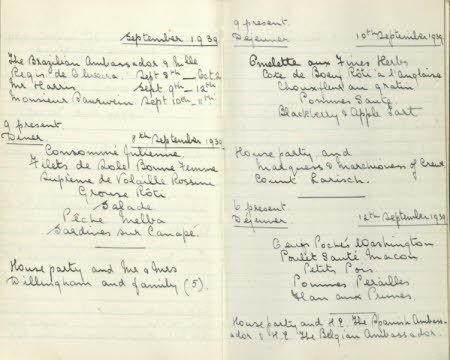 September 1939
The Brazilian Ambassador & Mlle
Regis de Oliveira. Sept 8th — Oct 2
Mr Harris Sept. 9th – 12th
Monsieur Sept 10th – 11th
9 present
Diner 8th September 1939
Consommé Julienne
Filets de Sole Bonne Femme
Suprême de Volaille Rossini
Grouse Rôti
Salade
Pêche Melba
Sardines sur Canape.
House party and Mr & Mrs
Dillingham and family (5).
9 present
Dejeuner 10th September 1939
Omelette aux Fines Herbs
Cote de Boeuf Rôti à l'Anglaise
Chouxfleur au gratin
Pommes Sauté
Blackberry & Apple Tart
House party and
Marquess & Marchioness of Crewe
Count Larisch.
6 present
Dejeuner 12th September 1939
Oeufs Pochés Washington
Poulet Sauté Macon
Petits Pois.
Pommes
Flan aux Prunes.
House party and H.E. The Spanish Ambass-
ador & H.E. The Belgian Ambassador.